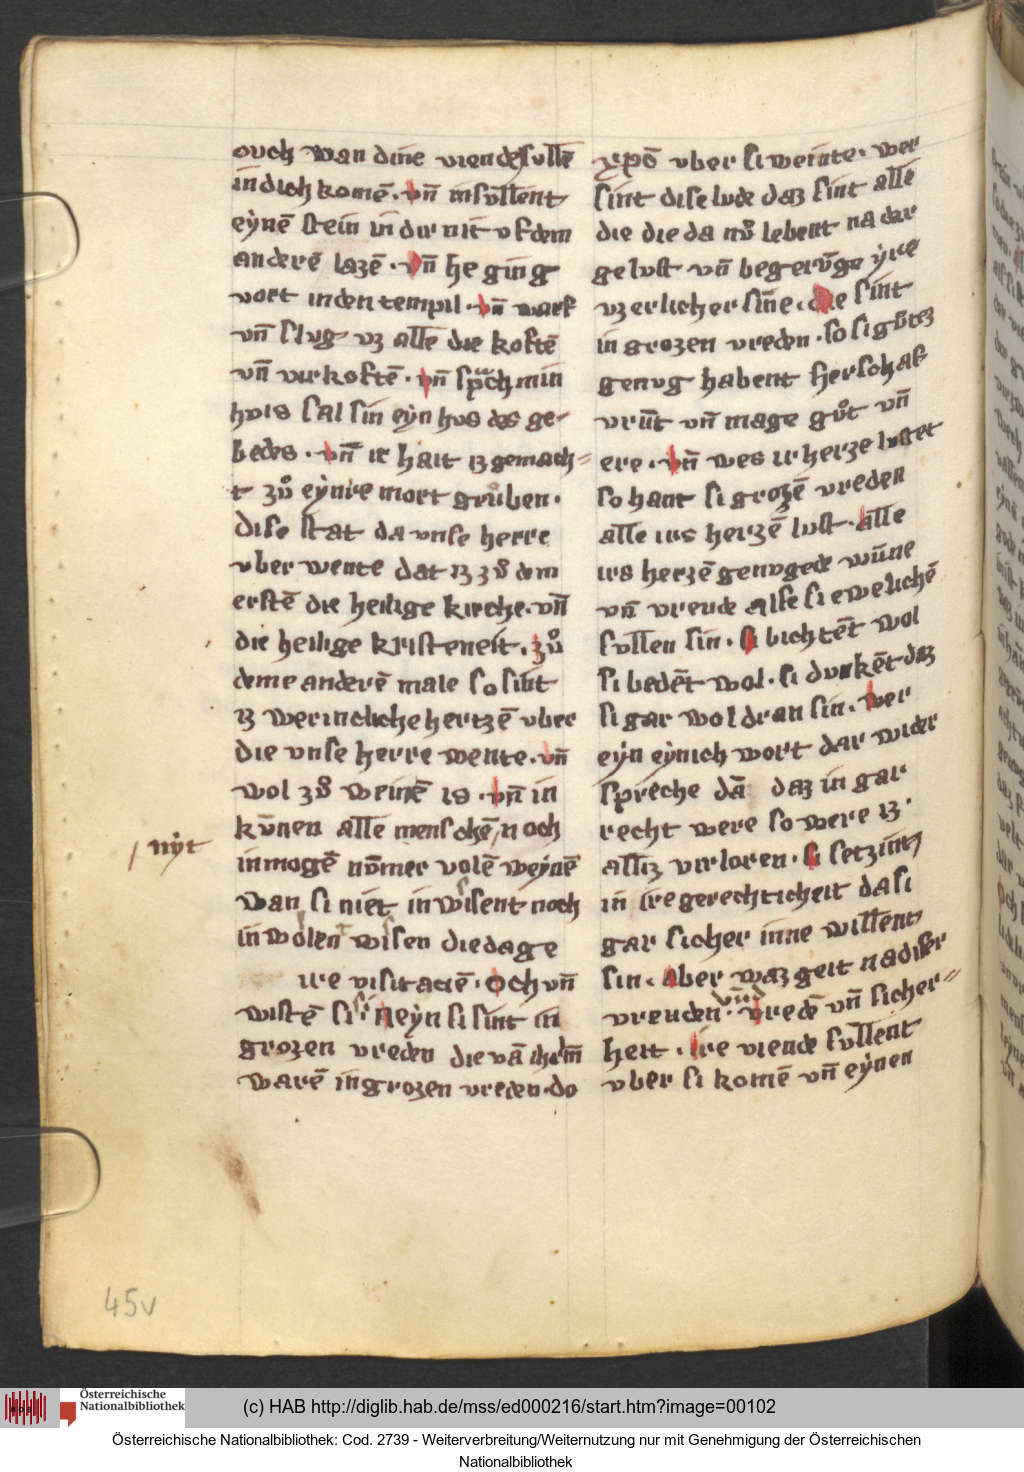 ouch wan dine viende sullē
in dich komē · vn̄ insullent
eynē stein in dir nit vf dem
anderē lazē · vn̄ he ging
vort in den tempil · vn̄ warf
vn̄ slug vz alle die koftē
vn̄ virkoftē · vn̄ sprach min
huis sal sin eyn hus des ge-
bedes · vn̄ ir hait iz gemach=
t zuͦ eynre mort gruͦben ·
Dise stat da vnse herre
vber wente dat iz zuͦ dem
erstē die heilige kirche · vn̄
die heilige kristeneit · zuͦ
deme anderē male so sint
iz werincliche hertzē vber
die vnse herre wente · vn̄
wol zuͦ weinē is · vn̄ in
kūnen alle menschē noch
nyt
in mogē nūmer volē weynē
wan si niet in wisent noch
in wolen wisen die dage
ire visitatiē · Och vn̄
wistē si neyn si sint in
grozen vreden die vā ihrlm̄
warē in grozen vreden · do
xp̄o vber si weinte · wer
sint dise lude daz sint alle
die die da nuͦ lebent na der
gelust vn̄ begerūge yre
vzerlicher sīne · die sint
in grozen vreden · so si guͦtez
genug habent herschaf
vrūt vn̄ mage guͦt vn̄
ere · vn̄ wes ir herze lustet
so hant si grozē vreden
alle irs herzē lust · alle
irs herzē genugede wūne
vn̄ vreude alse si ewelichē
sullen sin · si bichtēt wol
si bedēt wol · si dunkēt daz
si gar wol dran sin · wer
eyn eynich wort dar wider
spreche dā daz in gar
recht were so were iz ·
alliz virloren · si setzint
in ire gerechticheit da si
gar sicher inne willent
sin · aber waz geit na diser
vreuden · vredē vn̄ sicher=
heit · ire viende sullent
vber si komē vn̄ eynen
45v
Österreichische
Nationalbibliothek
(c) HAB http://diglib.hab.de/mss/ed000216/start.htm?image=00102
Österreichische Nationalbibliothek: Cod. 2739 - Weiterverbreitung/Weiternutzung nur mit Genehmigung der Österreichischen
Nationalbibliothek